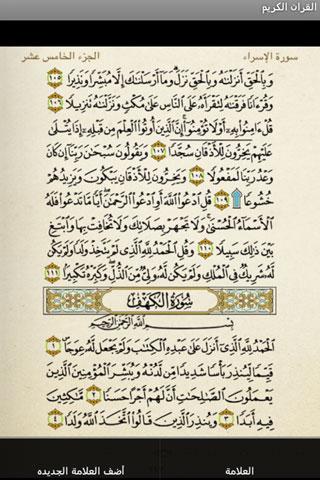 القرآن الكريم
سورة الإسراء
الجزء الخامس عشر
وَبِالْحَقِّ أَنزَلْنَاهُ وَبِالْحَقِّ نَزَلَ وَمَا أَرْسَلْنَاكَ إِلَّا مُبَشِّرًا وَنَذِيرًا ١٠٥
وَقُرْآنًا فَرَقْنَاهُ لِتَقْرَأَهُ عَلَى النَّاسِ عَلَى مُكْثٍ وَنَزَّلْنَاهُ تَنزِيلًا ١٠٦
قُلْ آمِنُوا بِهِ أَوْ لَا تُؤْمِنُوا إِنَّ الَّذِينَ أُوتُوا الْعِلْمَ مِن قَبْلِهِ إِذَا يُتْلَى
عَلَيْهِمْ يَخِرُّونَ لِلْأَذْقَانِ سُجَّدًا ١٠٧ وَيَقُولُونَ سُبْحَانَ رَبِّنَا إِن كَانَ
وَعْدُ رَبِّنَا لَمَفْعُولًا ١٠٨ وَيَخِرُّونَ لِلْأَذْقَانِ يَبْكُونَ وَيَزِيدُهُمْ
خُشُوعًا ١٠٩ قُلِ ادْعُوا اللَّهَ أَوِ ادْعُوا الرَّحْمَنَ أَيًّا مَّا تَدْعُوا فَلَهُ
الْأَسْمَاءُ الْحُسْنَى وَلَا تَجْهَرْ بِصَلَاتِكَ وَلَا تُخَافِتْ بِهَا وَابْتَغِ
بَيْنَ ذَلِكَ سَبِيلًا ١١٠ وَقُلِ الْحَمْدُ لِلَّهِ الَّذِي لَمْ يَتَّخِذْ وَلَدًا وَلَمْ يَكُن
لَّهُ شَرِيكٌ فِي الْمُلْكِ وَلَمْ يَكُن لَّهُ وَلِيٌّ مِّنَ الذُّلِّ وَكَبِّرْهُ تَكْبِيرًا ١١١
سُورَةُ الْكَهْفِ
بِسْمِ اللَّهِ الرَّحْمَنِ الرَّحِيمِ
الْحَمْدُ لِلَّهِ الَّذِي أَنزَلَ عَلَى عَبْدِهِ الْكِتَابَ وَلَمْ يَجْعَل لَّهُ عِوَجًا ١
قَيِّمًا لِّيُنذِرَ بَأْسًا شَدِيدًا مِّن لَّدُنْهُ وَيُبَشِّرَ الْمُؤْمِنِينَ الَّذِينَ
يَعْمَلُونَ الصَّالِحَاتِ أَنَّ لَهُمْ أَجْرًا حَسَنًا ٢ مَّاكِثِينَ
فِيهِ أَبَدًا ٣ وَيُنذِرَ الَّذِينَ قَالُوا اتَّخَذَ اللَّهُ وَلَدًا ٤
العلامة
أضف العلامة الجديده